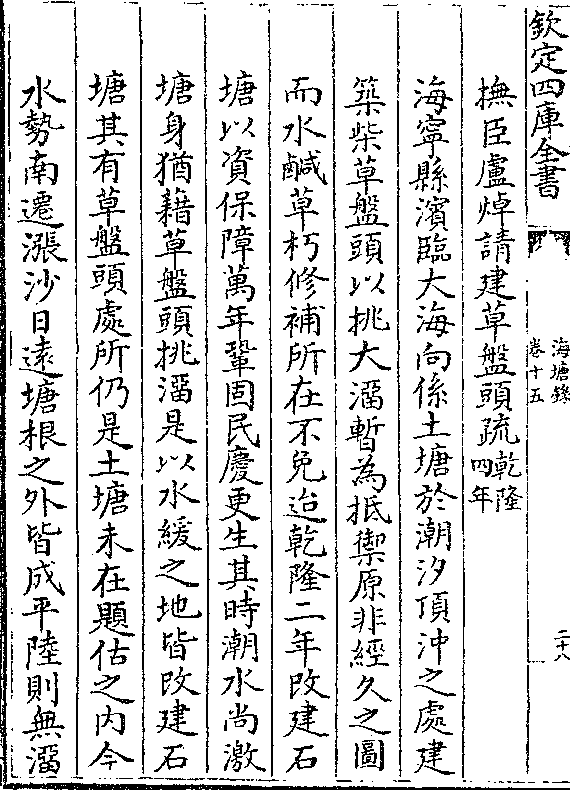 欽定四庫全書
海塘錄
卷十五
二十八
撫臣盧焯請建草盤頭疏乾隆四年
海寧縣濱臨大海向係土塘於潮汐頂沖之處建
築柴草盤頭以挑大溜暫為抵禦原非經久之圖
而水鹹草朽修補所在不免迨乾隆二年改建石
塘以資保障萬年鞏固民慶更生其時潮水尚激
塘身猶藉草盤頭挑溜是以水緩之地皆改建石
塘其有草盤頭處所仍是土塘未在題估之內今
水勢南遷漲沙日遠塘根之外皆成平陸則無溜